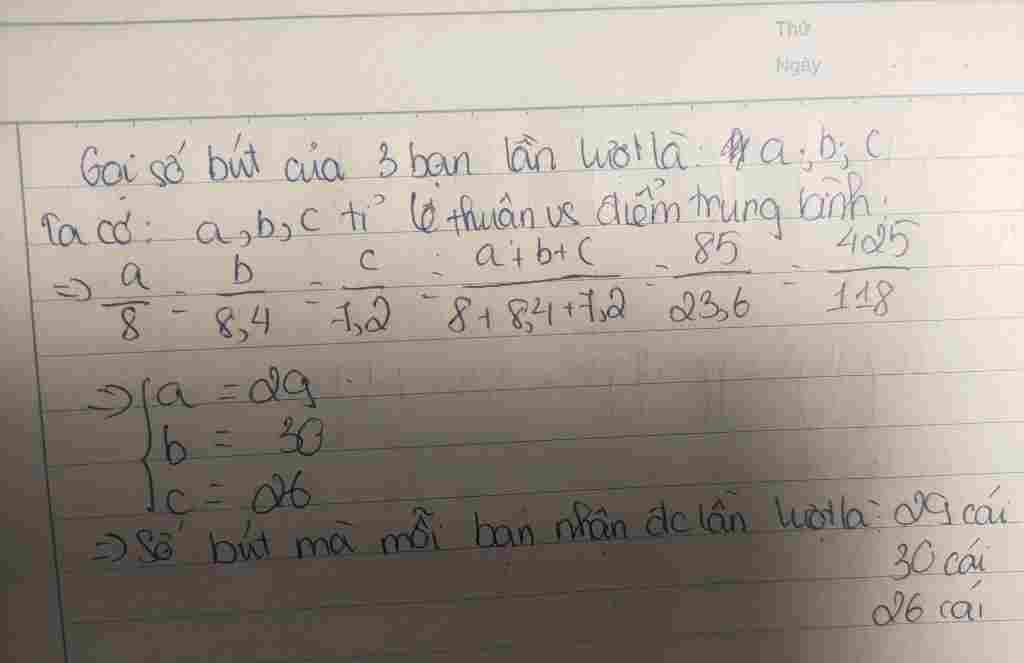 Thứ
Ngày
Gọi số bút của 3 bạn lần lượt là a; b; c
Ta có: a, b, c tỉ lệ thuận vs điểm trung bình.
=> a/8 = b/8,4 = c/7,2 = a+b+c/8+8,4+7,2 = 85/23,6 = 425/118
=> { a = 29
b = 30
c = 26
=> Số bút mà mỗi bạn nhận đc lần lượt là: 29 cái
30 cái
26 cái